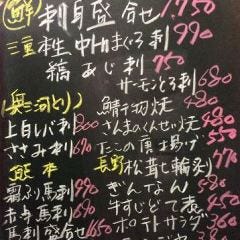 鮮 刺身盛合せ 1,750
三重 本生中トロまぐろ刺 990
縞あじ刺 750
サーモンとろ刺 680
(奥三河どり) 鯖 焼 480
上白レバ刺 800 さんまのくんせい焼 480
ささみ刺 690 たこの唐揚げ 550
熊本 長野 松茸 七輪 580
霜ふり馬刺 990 ぎんなん 450
赤身馬刺 牛すじどて煮 450
馬刺盛合せ ポテトサラダ 380
360